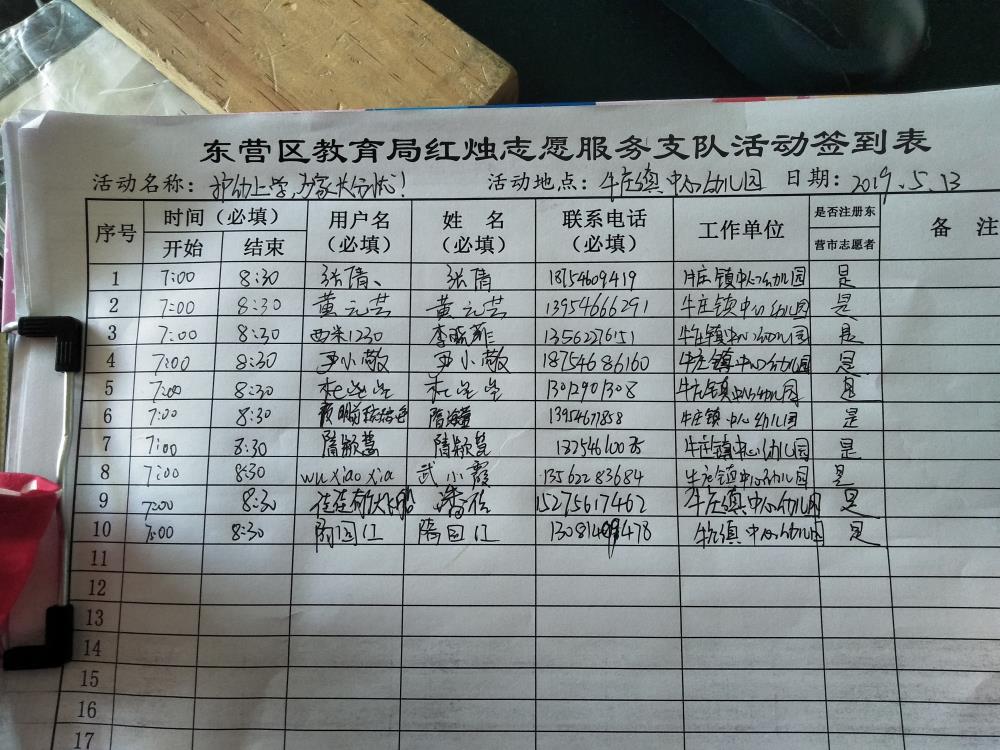 东营区教育局红烛志愿服务支队活动签到表
活动名称：护幼上学,为家长分忧！ 活动地点：牛庄镇中心幼儿园 日期：2019.5.13
序号 时间（必填） 用户名（必填） 姓名（必填） 联系电话（必填） 工作单位 是否注册东营市志愿者 备注
开始 结束
1 7:00 8:30 张倩、 张倩 18754609419 牛庄镇中心幼儿园 是
2 7:00 8:30 黄元芸 黄元芸 13954666291 牛庄镇中心幼儿园 是
3 7:00 8:30 西米1230 李晓菲 13562276151 牛庄镇中心幼儿园 是
4 7:00 8:30 王小敬 王小敬 18754686160 牛庄镇中心幼儿园 是
5 7:00 8:30 13012901308 牛庄镇中心幼儿园 是
6 7:00 8:30 13954677858 牛庄镇中心幼儿园 是
7 7:00 8:30 隋颖慧 隋颖慧 牛庄镇中心幼儿园 是
8 7:00 8:30 wuxiaoxia 武小霞 13562283684 牛庄镇中心幼儿园 是
9 7:00 8:30 15275617462 牛庄镇中心幼儿园 是
10 7:00 8:30 隋园江 隋园江 牛庄镇中心幼儿园 是
11
12
13
14
15
16
17